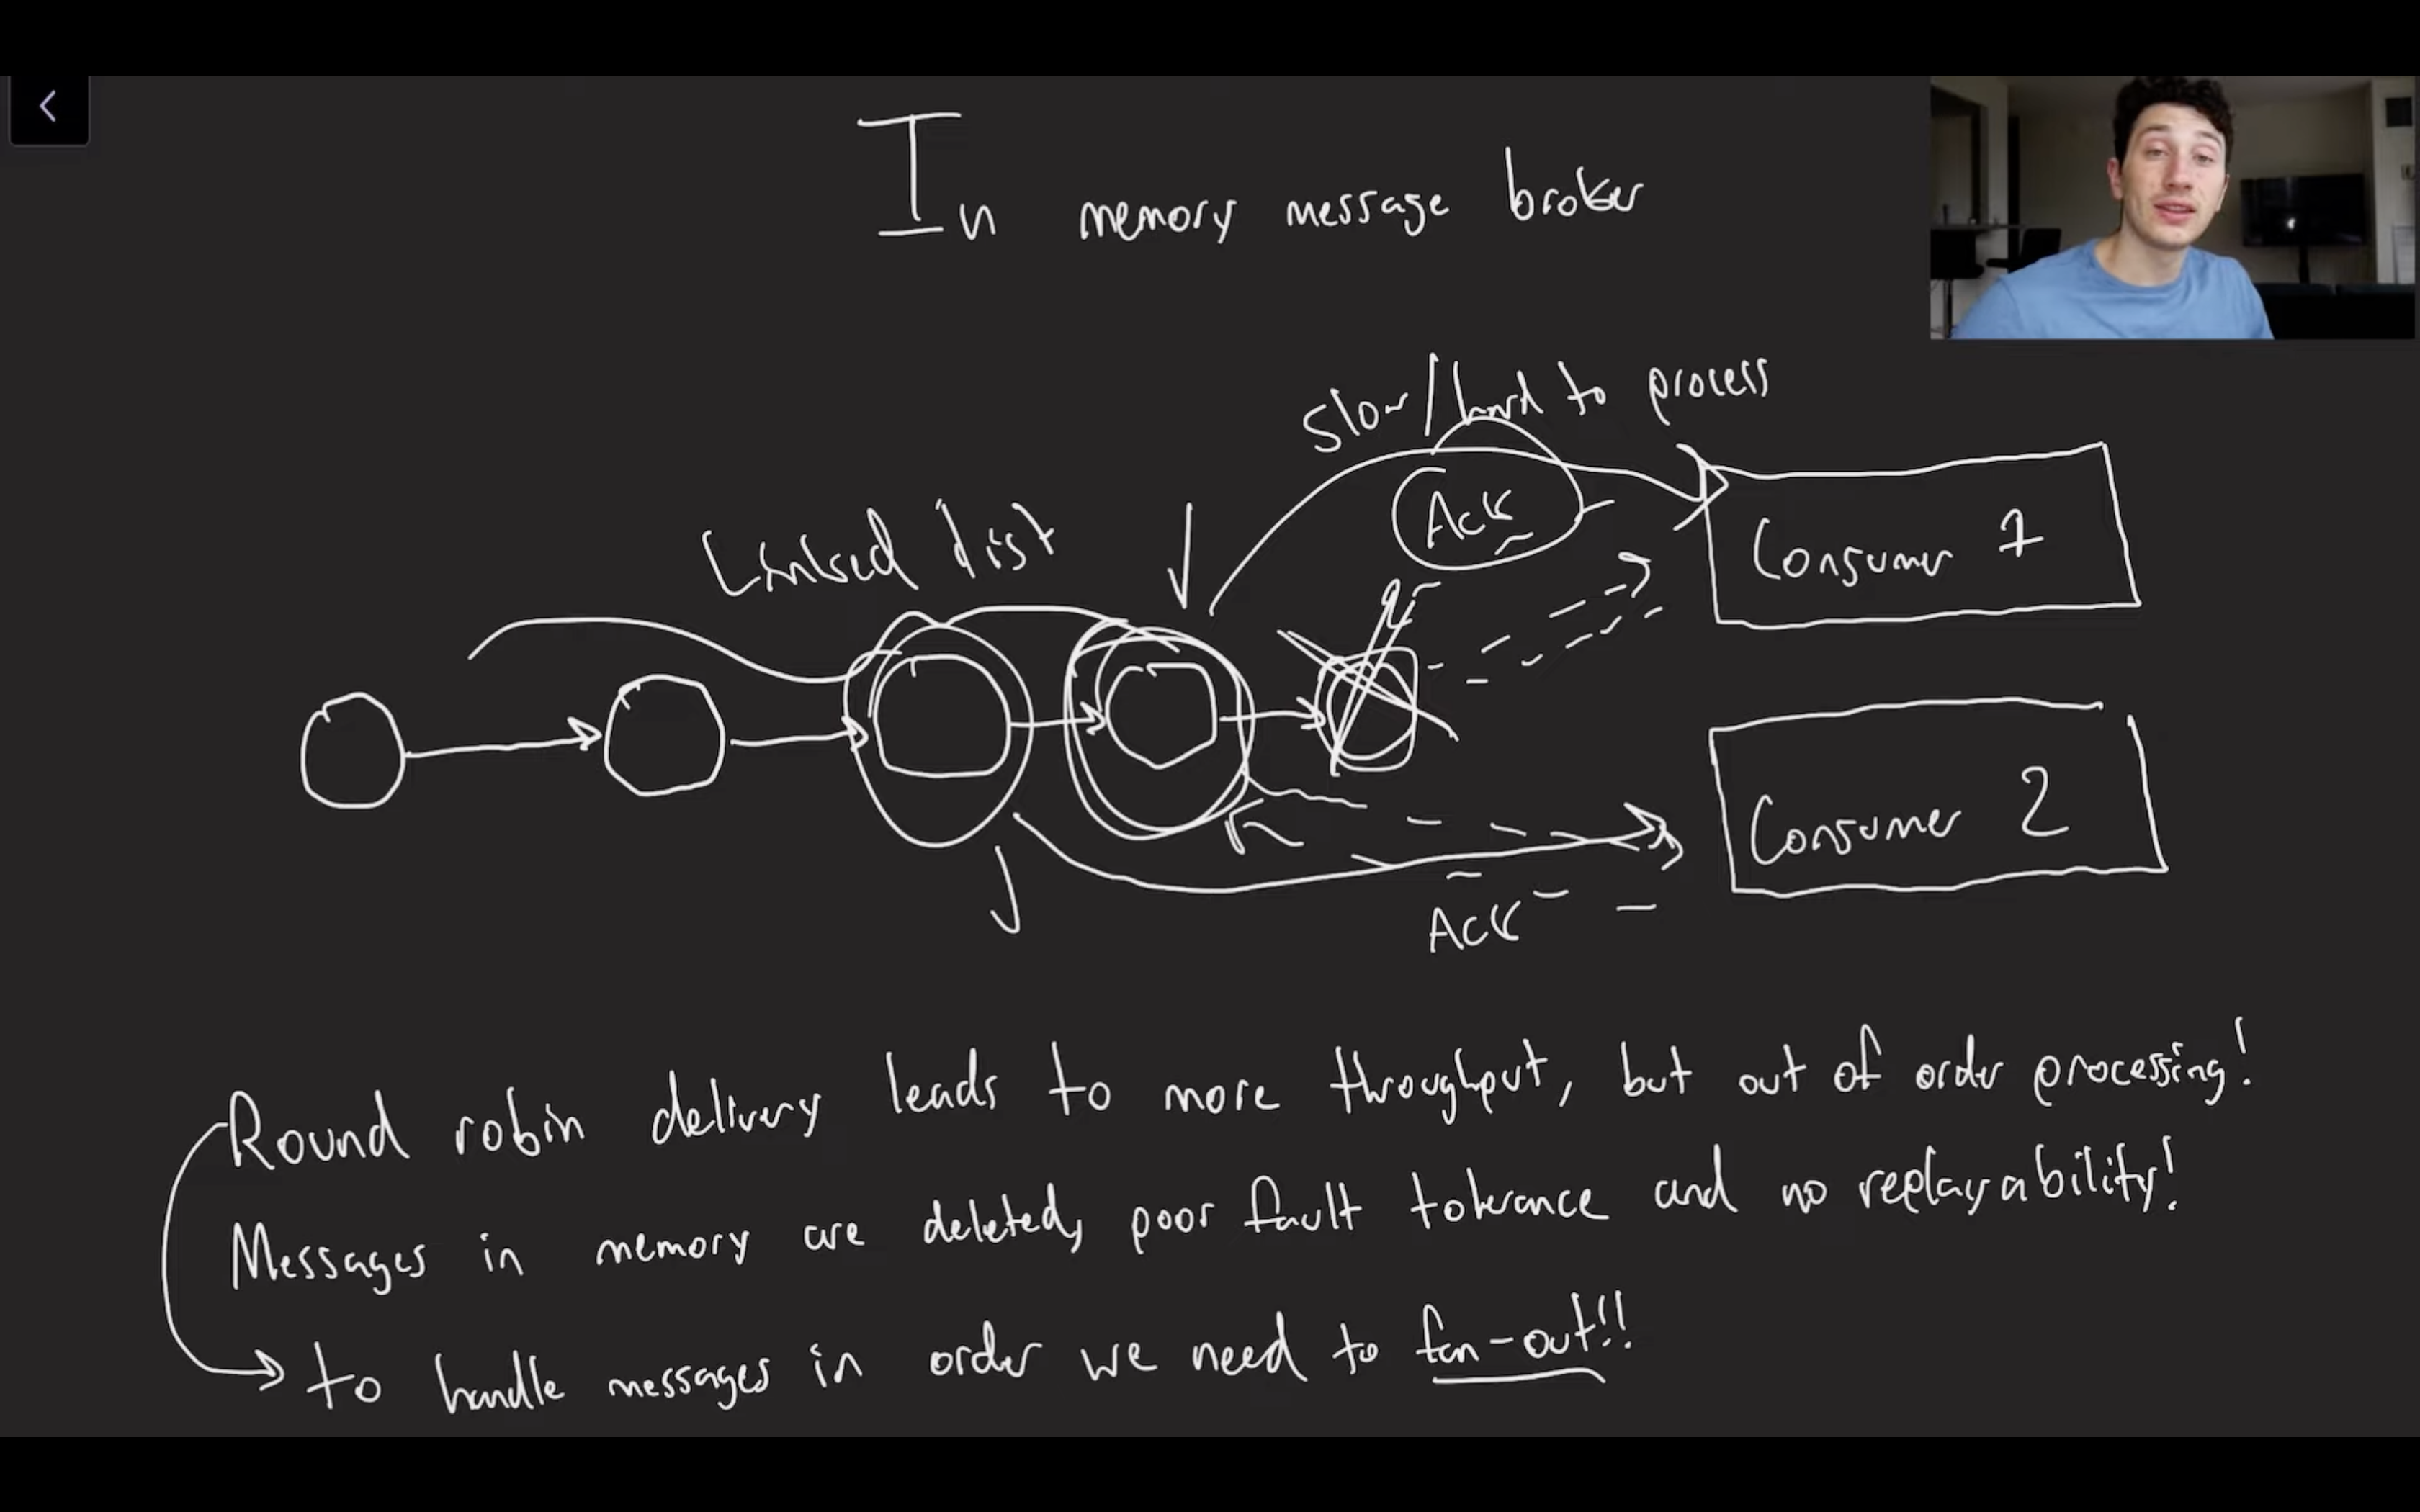 In memory message broker
Slow/hard to process
Ack
Linked list
Consumer 1
Consumer 2
Ack
Round robin delivery leads to more throughput, but out of order processing!
Messages in memory are deleted, poor fault tolerance and no replayability!
to handle messages in order we need to fan-out!!